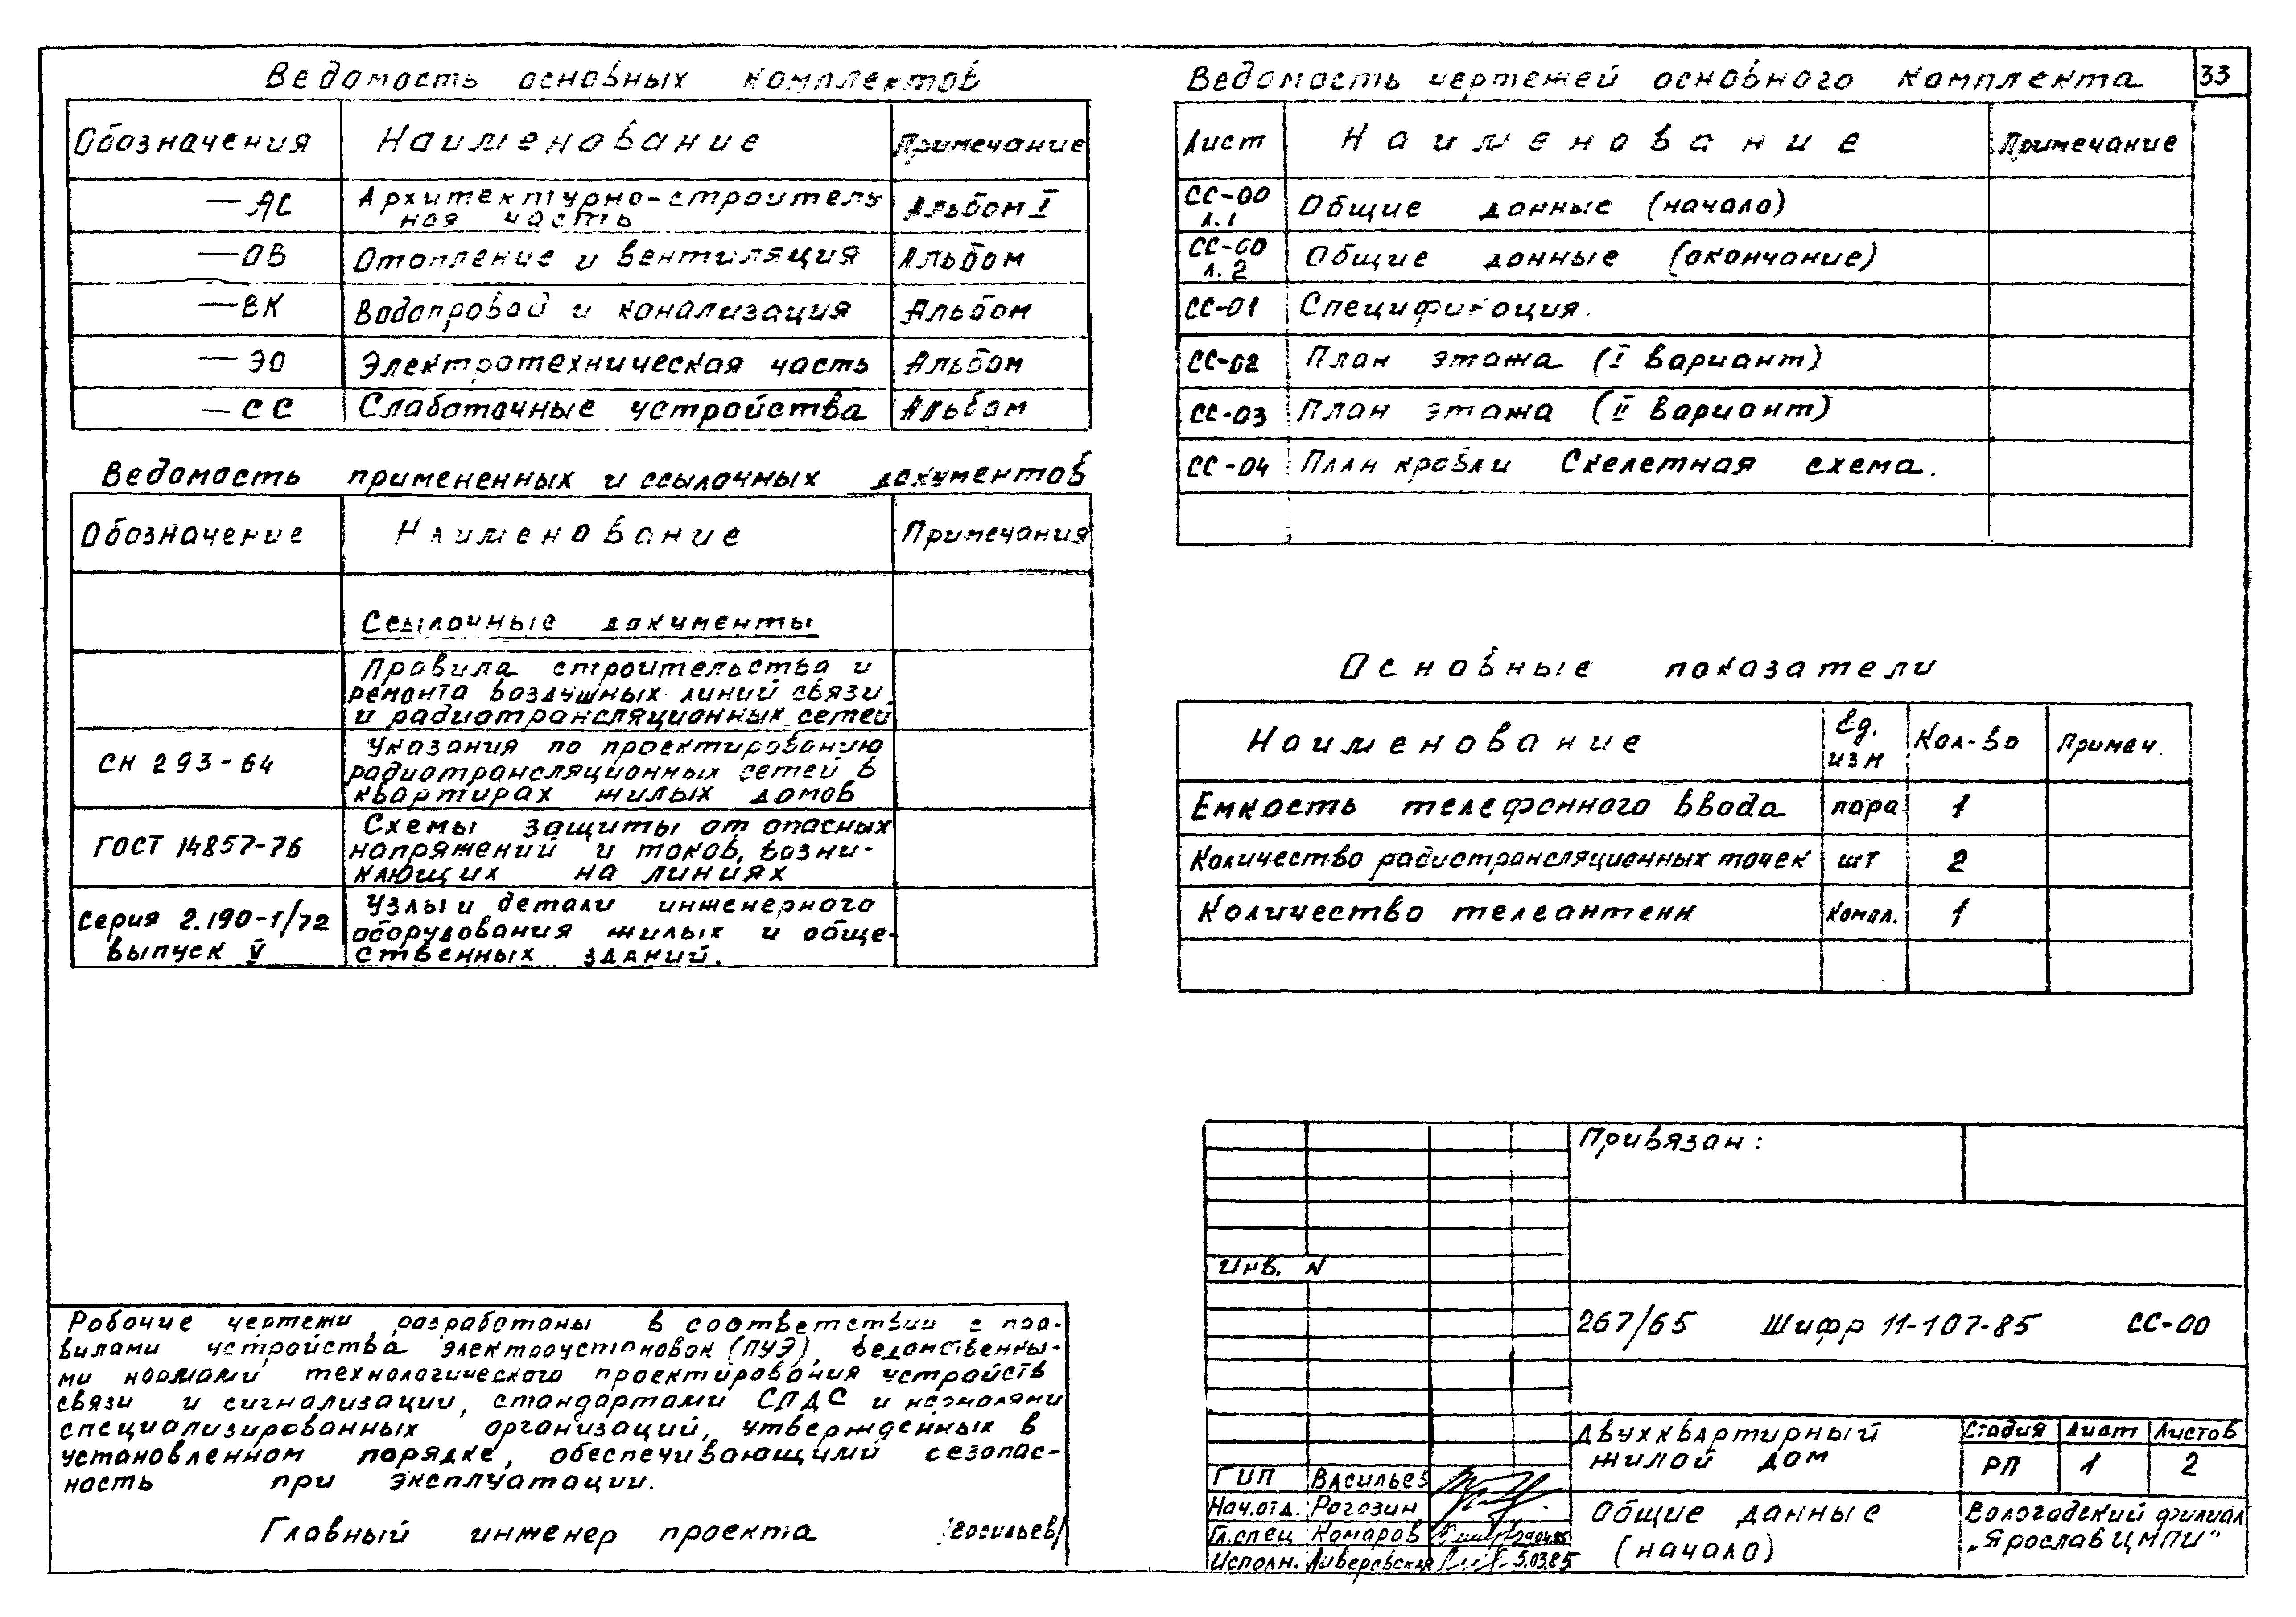 33
Ведомость основных комплектов
Обозначения Наименование Примечание
—АС Архитектурно-строитель
ная часть Альбом I
—ОВ Отопление и вентиляция Альбом
—ВК Водопровод и канализация Альбом
—ЭО Электротехническая часть Альбом
—СС Слаботочные устройства Альбом
Ведомость примененных и ссылочных документов
Обозначение Наименование Примечания
Ссылочные документы
Правила строительства и
ремонта воздушных линий связи
и радиотрансляционных сетей
СН 293-64 Указания по проектированию
радиотрансляционных сетей в
квартирах жилых домов
ГОСТ 14857-76 Схемы защиты от опасных
напряжений и токов, возни-
кающих на линиях
Серия 2.190-1/72
выпуск V
Узлы и детали инженерного
оборудования жилых и обще-
ственных зданий.
Рабочие чертежи разработаны в соответствии с пра-
вилами устройства электроустановок (ПУЭ), ведомственны-
ми нормами технологического проектирования устройств
связи и сигнализации, стандартами СПДС и нормалями
специализированных организаций, утвержденных в
установленном порядке, обеспечивающими безопас-
ность при эксплуатации.
Главный инженер проекта /Васильев/
Ведомость чертежей основного комплекта
Лист Наименование Примечание
СС-00
л.1 Общие данные (начало)
СС-00
л.2 Общие данные (окончание)
СС-01 Спецификация.
СС-02 План этажа (I вариант)
СС-03 План этажа (II вариант)
СС-04 План кровли Скелетная схема.
Основные показатели
Наименование Ед.
изм Кол-во Примеч.
Емкость телефонного ввода пара 1
Количество радиотрансляционных точек шт 2
Количество телеантенн компл. 1
Привязан:
Инв. N
267/65 Шифр 11-107-85 СС-00
Двухквартирный
жилой дом
Стадия Лист Листов
РП 1 2
ГИП Васильев
Нач.отд. Рогозин
Гл.спец Комаров 29.04.85
Исполн. Ливеровская 5.03.85
Общие данные
(начало)
Вологодский филиал
„ЯрославЦМПИ"